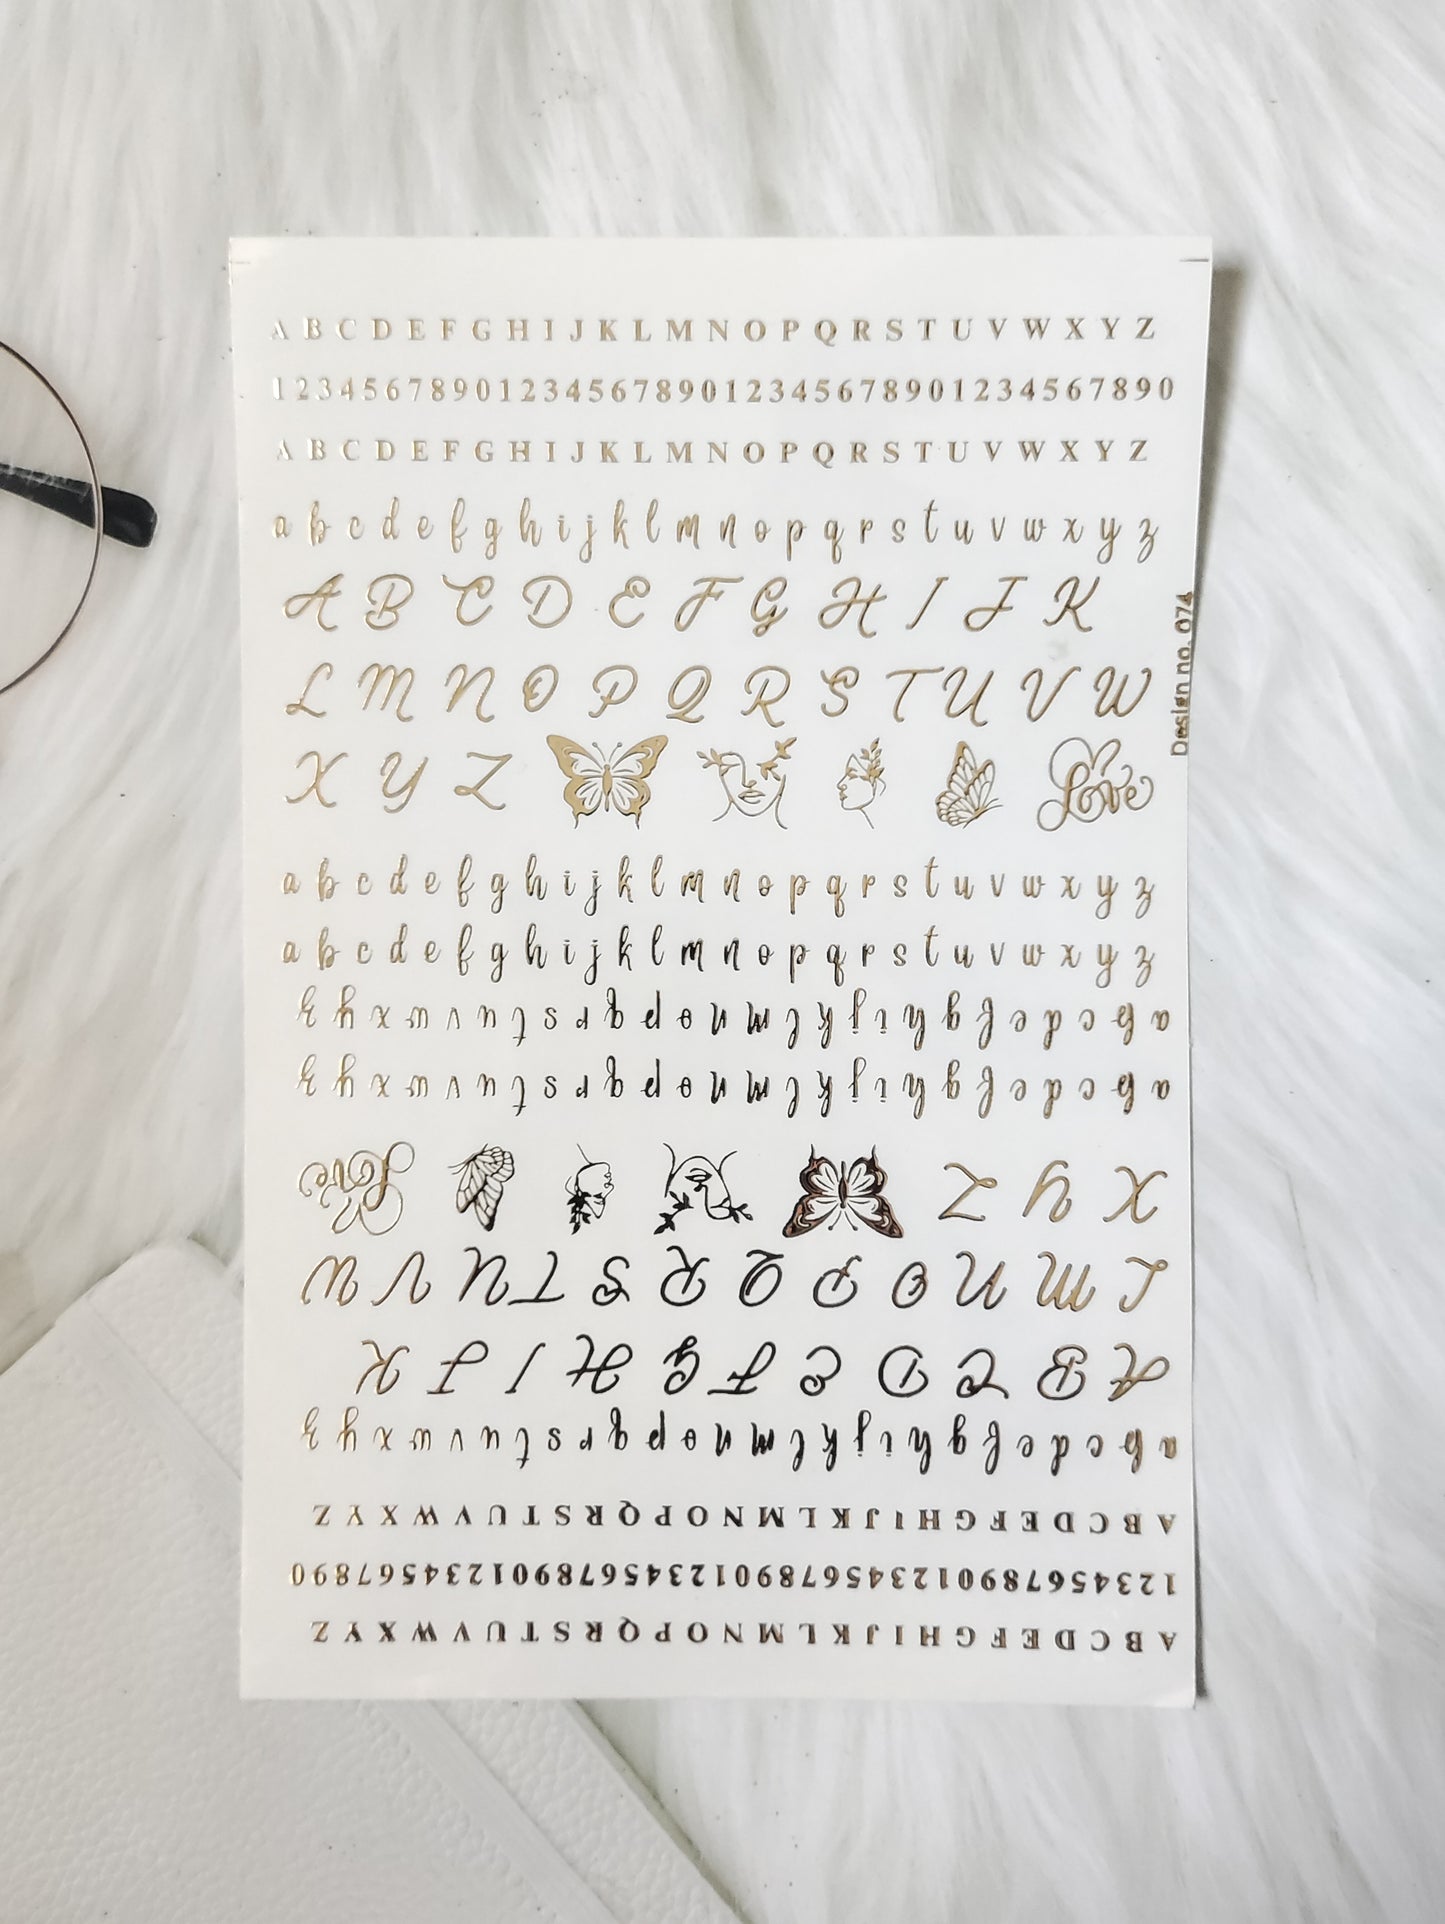 A B C D E F G H I J K L M N O P Q R S T U V W X Y Z
1 2 3 4 5 6 7 8 9 0 1 2 3 4 5 6 7 8 9 0 1 2 3 4 5 6 7 8 9 0 1 2 3 4 5 6 7 8 9 0
A B C D E F G H I J K L M N O P Q R S T U V W X Y Z
a b c d e f g h i j k l m n o p q r s t u v w x y z
A B C D E F G H I J K
L M N O P Q R S T U V W
X Y Z Love
Design no. 074
a b c d e f g h i j k l m n o p q r s t u v w x y z
a b c d e f g h i j k l m n o p q r s t u v w x y z
a b c d e f g h i j k l m n o p q r s t u v w x y z
a b c d e f g h i j k l m n o p q r s t u v w x y z
X Y Z Love
L M N O P Q R S T U V W
A B C D E F G H I J K
a b c d e f g h i j k l m n o p q r s t u v w x y z
A B C D E F G H I J K L M N O P Q R S T U V W X Y Z
1 2 3 4 5 6 7 8 9 0 1 2 3 4 5 6 7 8 9 0 1 2 3 4 5 6 7 8 9 0 1 2 3 4 5 6 7 8 9 0
A B C D E F G H I J K L M N O P Q R S T U V W X Y Z